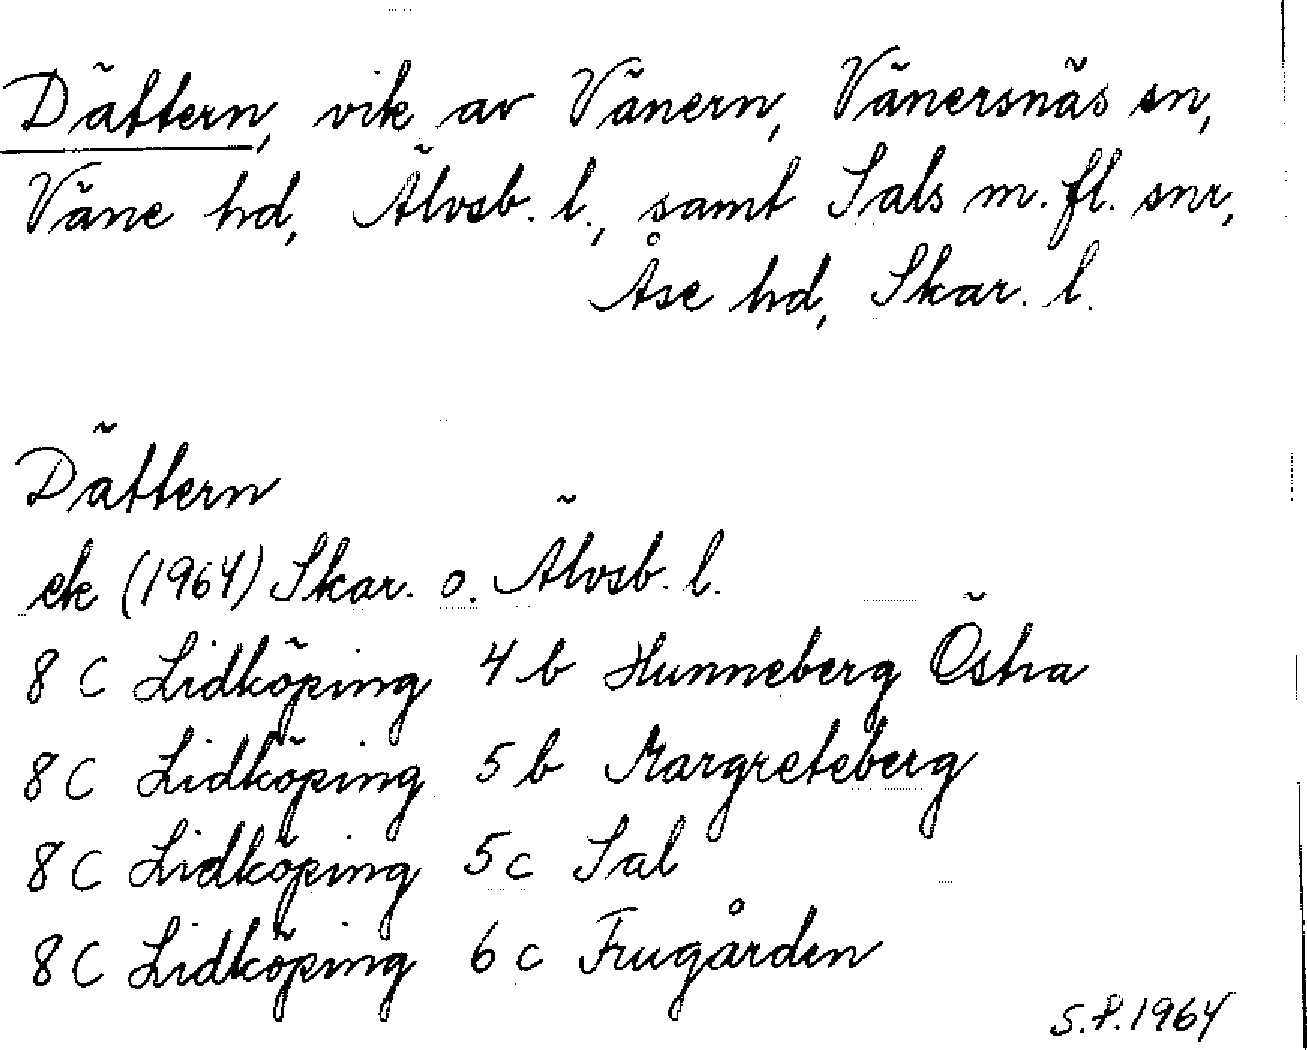 Dättern, vik av Vänern, Vänersnäs sn,
Väne hd, Älvsb. l., samt Sals m. fl. snr,
Åse hd, Skar. l.
Dättern
ek (1964) Skar. o. Älvsb. l.
8 C Lidköping 4 b Hunneberg Östra
8 C Lidköping 5 b Margreteberg
8 C Lidköping 5 c Sal
8 C Lidköping 6 c Frugården
S.P. 1964